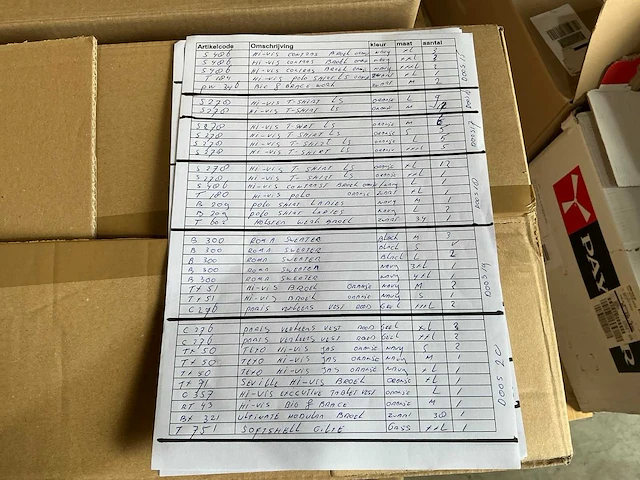 Artikelcode Omschrijving kleur maat aantal
S 486 Hi-vis contras Broek oran navy xL 3
S 486 Hi-vis contras Broek oran navy xxL
S 486 Hi-vis contras Broek oran navy xxxL
T 184 Hi-vis polo shirt LS xL 1
PW 346 Bib & Brace work zwart M
DOOS 15
S 278 Hi-vis T-shirt LS oranje L 9
S 278 Hi-vis T-shirt LS oranje M
S 278 Hi-vis T-shirt LS oranje M 6
S 278 Hi-vis T-shirt LS oranje S 5
S 278 Hi-vis T-shirt LS oranje L 5
S 278 Hi-vis T-shirt LS oranje xxL 5
DOOS 17
S 278 Hi-vis T-shirt LS oranje xL 12
S 278 Hi-vis T-shirt LS oranje xxL 1
S 486 Hi-vis contrast Broek oran navy L 1
T 180 Hi-vis polo oranje xL 1
B 209 polo shirt Ladies navy M 1
B 209 polo shirt Ladies navy L 2
T 602 Holster werk Broek zwart 34 1
DOOS 18
B 300 Roma sweater Black M 3
B 300 Roma sweater Black S
B 300 Roma sweater Black L 2
B 300 Roma sweater navy 3xL 1
B 300 Roma sweater navy 4xL 1
TX 51 Hi-vis Broek oranje navy M 2
TX 51 Hi-vis Broek oranje navy S 1
C 276 Paris verkeers vest rood geel xxL 2
DOOS 19
C 276 Paris verkeers vest rood geel xL 3
C 276 Paris verkeers vest rood geel xxL 2
TX 50 Texo Hi-vis jas oranje navy S 2
TX 50 Texo Hi-vis jas oranje navy M 1
TX 50 Texo Hi-vis jas oranje navy xL 1
TX 71 Seville Hi-vis Broek oranje xL 1
C 357 Hi-vis executive tablet vest oranje L 1
RT 43 Hi-vis Bib & Brace oranje M 1
BX 321 Ultimate modular Broek zwart 30 1
T 751 Softshell Gilet Gass xxL 1
DOOS 20
DAY